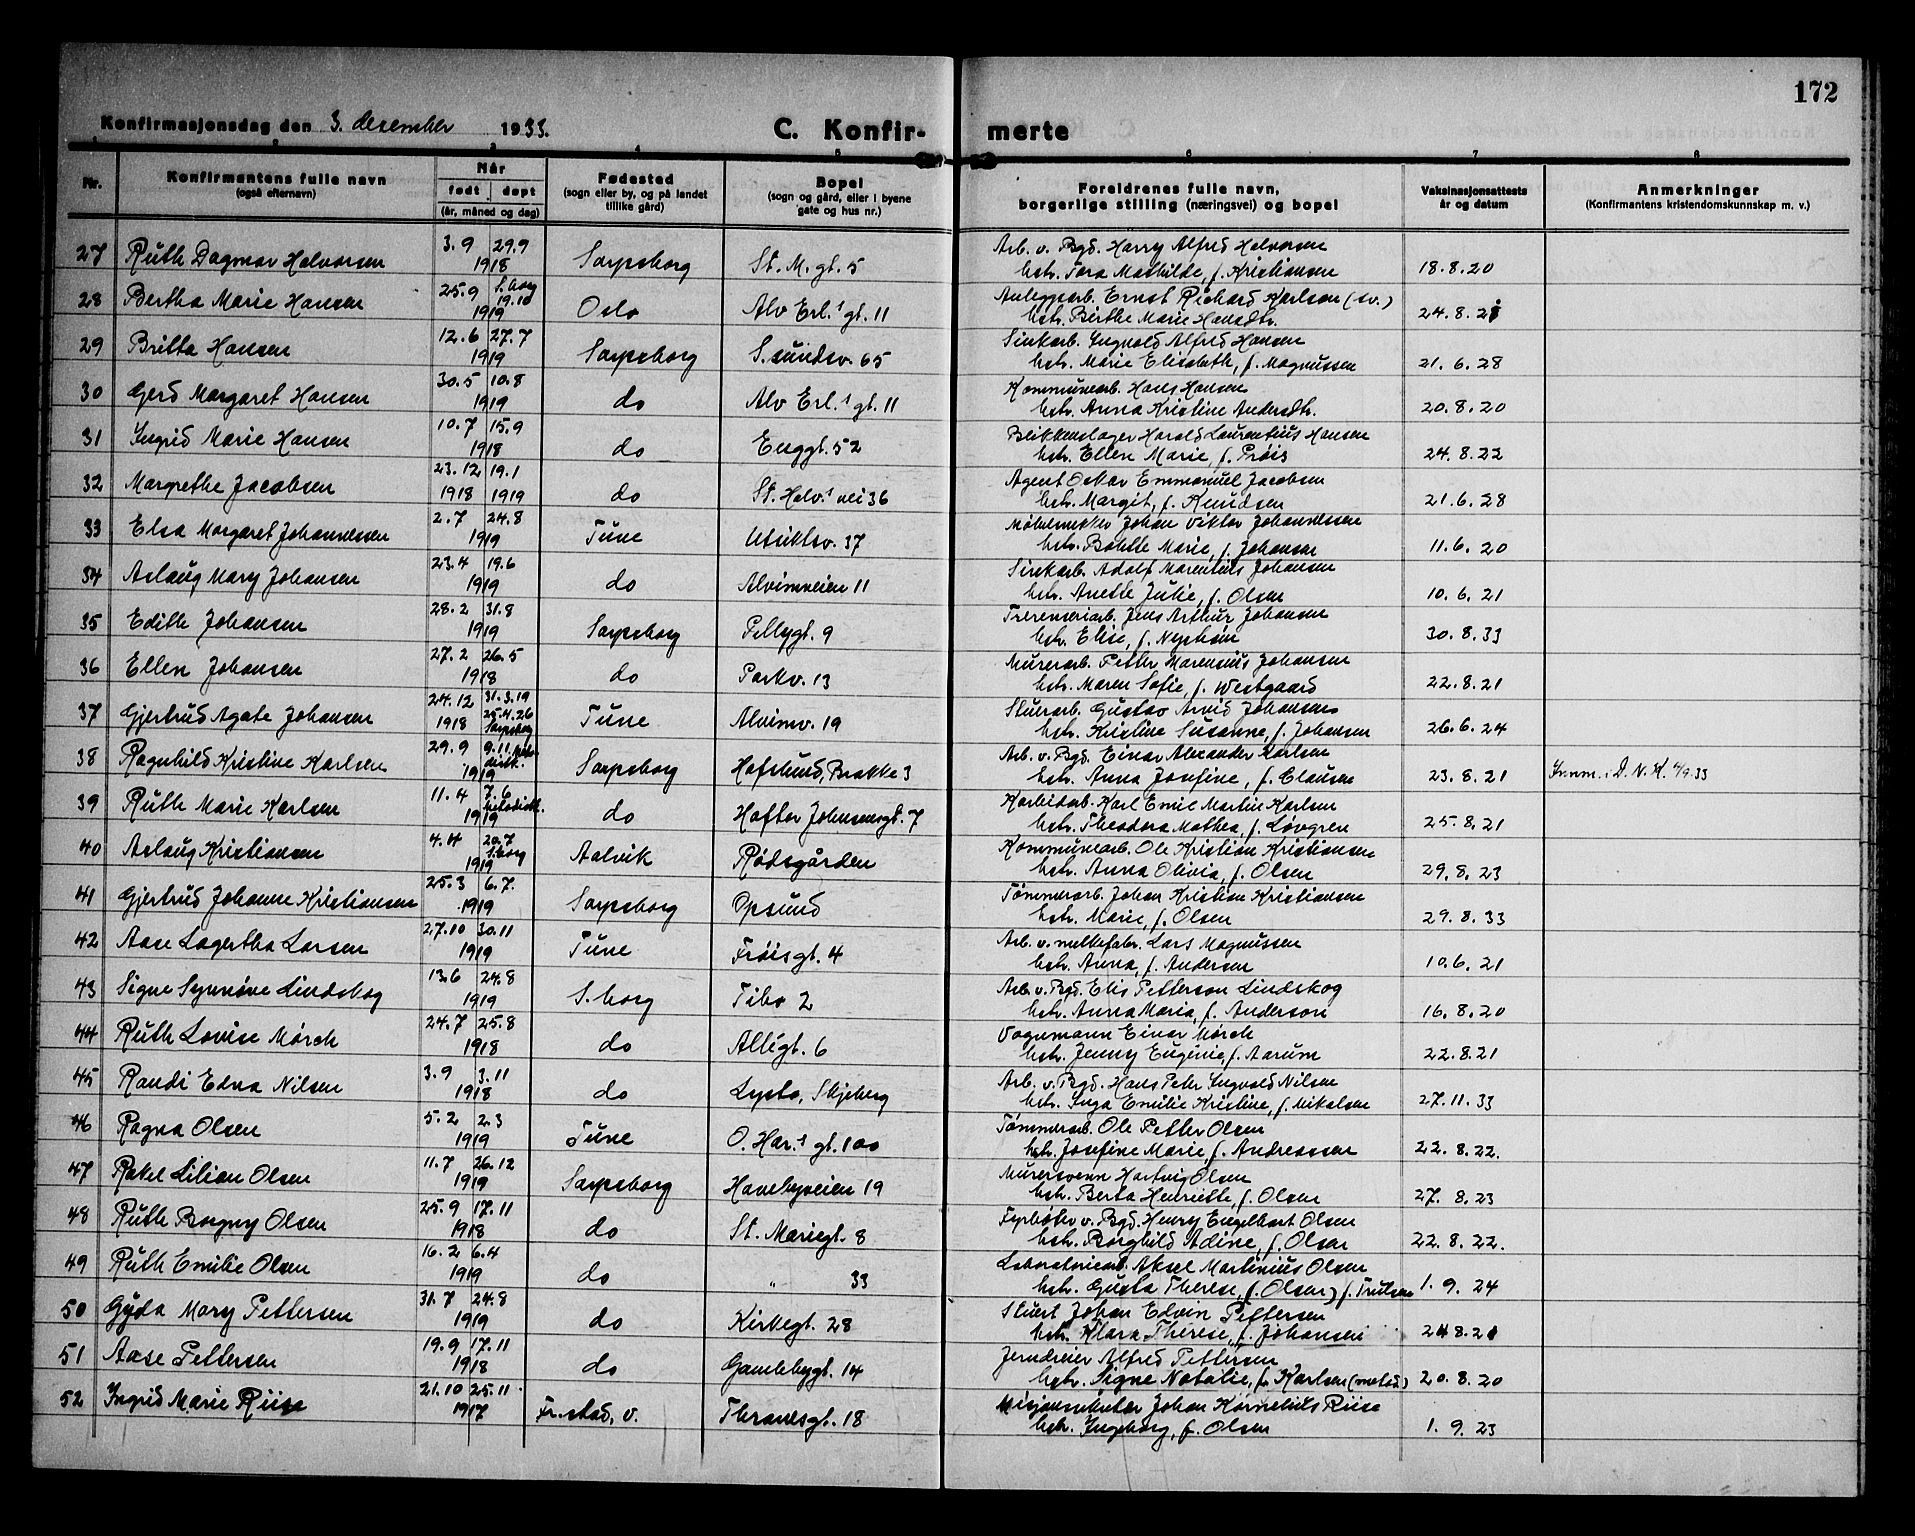 172
Konfirmasjonsdag den 3. desember 1933.
C. Konfir- merte
1 2 3 4 5 6 7 8
Nr.
Konfirmantens fulle navn
(også efternavn)
Når
født døpt
(år, måned og dag)
Fødested
(sogn eller by, og på landet
tillike gård)
Bopel
(sogn og gård, eller i byene
gate og hus nr.)
Foreldrenes fulle navn,
borgerlige stilling (næringsvei) og bopel
Vaksinasjonsattests
år og datum
Anmerkninger
(Konfirmantens kristendomskunnskap m. v.)
27 Ruth Dagmar Halvorsen 3.9 29.9 1918 Sarpsborg St. M. gt. 5 Arb. v. Bgd. Harry Alfred Halvorsen
hstr. Tora Mathilde, f. Kristiansen 18.8.20
28 Bertha Marie Hansen 25.9 S.borg 19.10 1919 Oslo Alv Erl.s gt. 11 Anleggsarb. Ernst Richard Karlson (sv.)
hstr. Birthe Marie Hansdtr. 24.8.21
29 Britta Hansen 12.6 27.7 1919 Sarpsborg S.sundsv. 65 Sinkarb. Ingvald Alfred Hansen
hstr. Marie Elisabeth, f. Magnussen 21.6.28
30 Gerd Margaret Hansen 30.5 10.8 1919 do Alv Erl.s gt. 11 Kommunearb. Hans Hansen
hstr. Anna Kristine Andersdtr. 20.8.20
31 Ingrid Marie Hansen 10.7 15.9 1918 do Enggt. 52 Blikkenslager Harald Laurentius Hansen
hstr. Ellen Marie, f. Prøis 24.8.22
32 Margrethe Jacobsen 23.12 19.1 1918 1919 do St. Halv.s vei 36 Agent Oskar Emmanuel Jacobsen
hstr. Margit, f. Knudsen 21.6.28
33 Elsa Margaret Johannessen 2.7 24.8 1919 Tune Utsiktsv. 37 Møbelsnekker Johan Viktor Johannessen
hstr. Bolette Marie, f. Johansen 11.6.20
34 Aslaug Mary Johansen 23.4 19.6 1919 do Alvimveien 11 Sinkarb. Adolf Marentius Johansen
hstr. Anette Julie, f. Olsen 10.6.21
35 Edith Johansen 28.2 31.8 1919 Sarpsborg Pellygt. 9 Trerenseriarb. Jens Arthur Johansen
hstr. Elise, f. Nyrhøin 30.8.33
36 Ellen Johansen 27.2 26.5 1918 do Parkv. 13 Murerarb. Petter Marensius Johansen
hstr. Maren Sofie, f. Westgaard 22.8.21
37 Gjertrud Agate Johansen 24.12 1918 31.3.19 25.4.26 Sarpsborg Tune Alvimv. 19 Stuerarb. Gustav Arvid Johansen
hstr. Kristine Susanne, f. Johansen 26.6.24
38 Ragnhild Kristine Karlsen 29.9 9.11. 1919 Sarpsborg Hafslund, Brakke 3 Arb. v. Bgd. Einar Alexander Karlsen
hstr. Anna Josefine, f. Clausen 23.8.21 Innm. i D.N.K. 4/9.33
39 Ruth Marie Karlsen 11.4 7.6 metodistk. 1919 do Hafter Johnsensgt. 7 Karbidarb. Karl Emil Martin Karlsen
hstr. Theodora Mathea, f. Løvgren 25.8.21
40 Aslaug Kristiansen 4.4 20.7 S.borg 1919 Aalvik Rødsgården Kommunearb. Ole Kristian Kristiansen
hstr. Anna Olivia, f. Olsen 29.8.23
41 Gjertrud Johanne Kristiansen 25.3 6.7. 1919 Sarpsborg Opsund Tømmerarb. Johan Kristian Kristiansen
hstr. Marie, f. Olsen 29.8.33
42 Aase Lagertha Larsen 27.10 30.11 1919 Tune Frøisgt. 4 Arb. v. melkefabr. Lars Magnussen
hstr. Anna, f. Andersen 10.6.21
43 Signe Synnøve Lindskog 13.6 24.8 1919 S.borg Tibo 2 Arb. v. Bgd. Elis Petterson Lindskog
hstr. Anna Maria, f. Anderson 16.8.20
44 Ruth Lovise Mørch 24.7 25.8 1918 do Allégt. 6 Vognmann Einar Mørch
hstr. Jenny Eugenie, f. Aarum 22.8.21
45 Randi Edna Nilsen 3.9 3.11 1918 do Lysto, Skjeberg Arb. v. Bgd. Hans Petr Ingvald Nilsen
hstr. Inga Emilie Kristine, f. Mikalsen 27.11.33
46 Ragna Olsen 5.2 2.3 1919 Tune O. Har.s gt. 100 Tømmerarb. Ole Petter Olsen
hstr. Josefine Marie, f. Andreassen 22.8.22.
47 Rakel Lilian Olsen 11.7 26.12 1919 Sarpsborg Havebyveien 19 Murersvenn Hartvig Olsen
hstr. Berta Henriette, f. Olsen 27.8.23
48 Ruth Borgny Olsen 25.9 17.11 1918 do St. Mariegt. 8 Fyrbøter v. Bgd. Henry Engelhart Olsen
hstr. Borghild Adine, f. Olsen 22.8.22.
49 Ruth Emilie Olsen 16.2 6.4 1919 do " 33 Laboratoriearb. Aksel Martinius Olsen
hstr. Gusta Therese, (f. Olsen) f. Trulsen 1.9.24
50 Gyda Mary Pettersen 31.7 24.8 1919 do Kirkegt. 28 Stuert Johan Edvin Pettersen
hstr. Klara Therese, f. Johansen 24.8.21
51 Aase Pettersen 19.9 17.11 1918 do Gamlebygt. 14 Jerndreier Alfred Pettersen
hstr. Signe Natalie, f. Karlsen (metod) 20.8.20
52 Ingrid Marie Riise 21.10 25.11. 1917 Fr.stad, v. Thranesgt. 18 Misjonsarbeider Johan Kornelius Riise
hstr. Ingeborg, f. Olsen 1.9.23